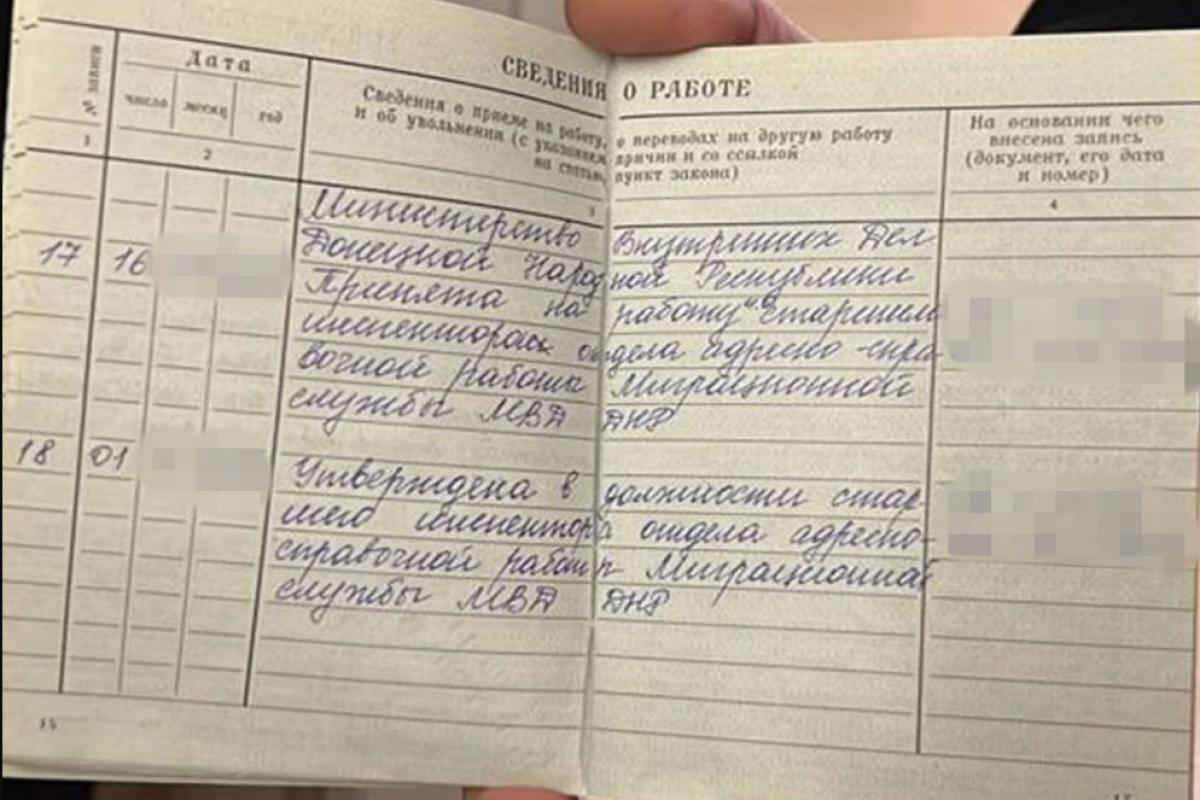 СВЕДЕНИЯ О РАБОТЕ
№ записи
Дата
число месяц год
Сведения о приеме на работу, о переводах на другую работу
и об увольнении (с указанием причин и со ссылкой
на статью, пункт закона)
На основании чего
внесена запись
(документ, его дата
и номер)
1 2 3 4
Министерство Внутренних Дел
17 16 Донецкой Народной Республики
Принята на работу старшим
инспектором отдела адресно-спра
вочной работы Миграционной
службы МВД ДНР
18 01 Утверждена в должности стар-
шего инспектора отдела адресно-
справочной работы Миграционной
службы МВД ДНР
14
15